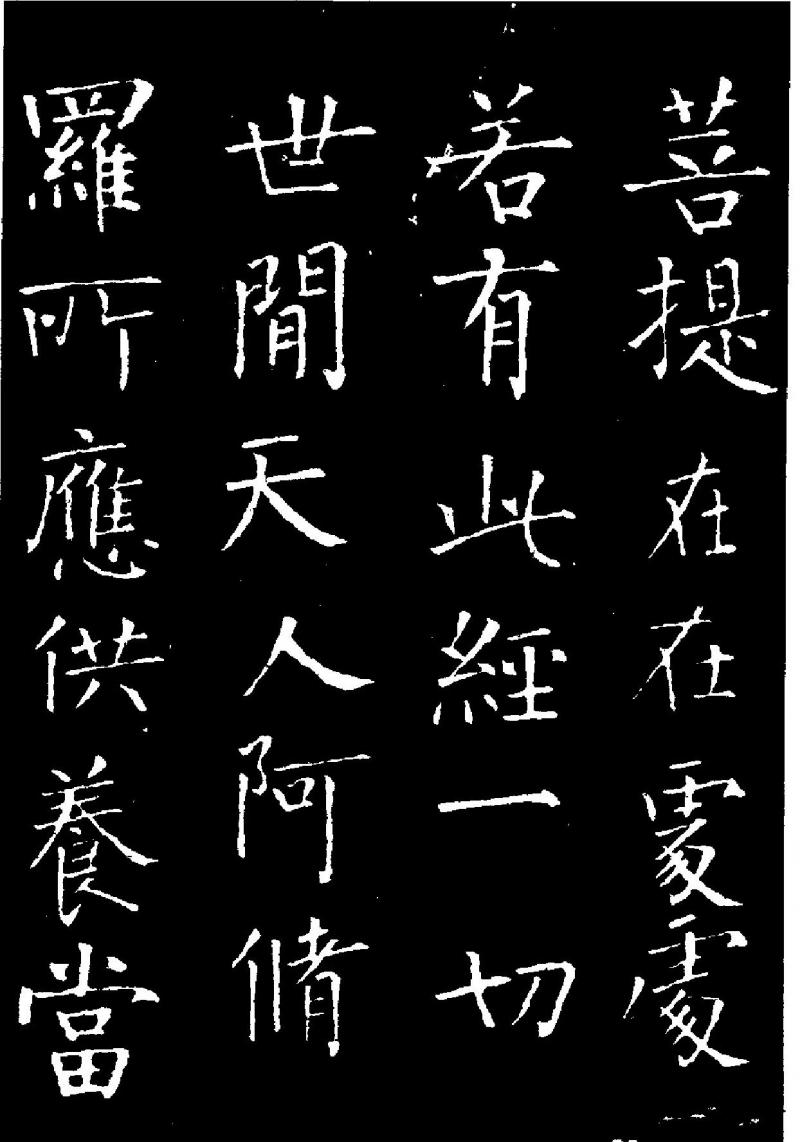 菩提在在處處
若有此經一切
世間天人阿脩
羅所應供養當